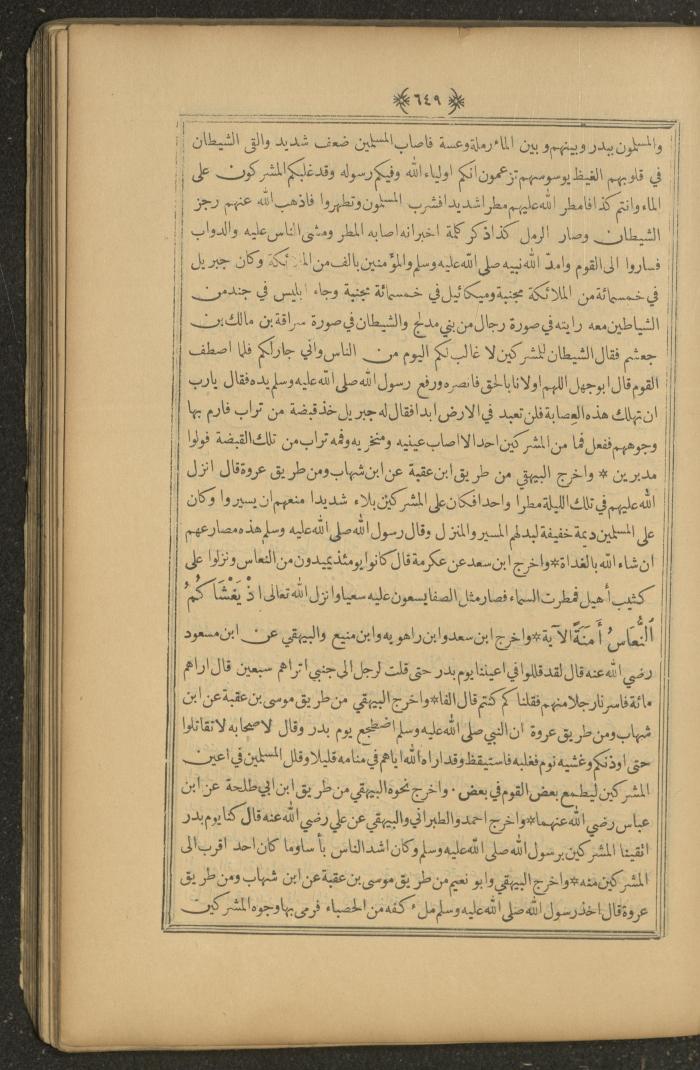 ﴿٦٤٩﴾
والمسلمون ببدر وبينهم وبين الماء رملة وعسة فاصاب المسلمين ضعف شديد والقى الشيطان
في قلوبهم الغيظ يوسوسهم تزعمون انكم اولياء الله وفيكم رسوله وقد غلبكم المشركون على
الماء وانتم كذا فامطر الله عليهم مطرا شديدا فشرب المسلمون وتطهروا فاذهب الله عنهم رجز
الشيطان وصار الرمل كذا ذكر كلمة اخبر انه اصابه المطر ومشى الناس عليه والدواب
فساروا الى القوم وامدّ الله نبيه صلى الله عليه وسلم والمؤمنين بالف من الملائكة وكان جبريل
في خمسمائة من الملائكة مجنبة وميكائيل في خمسمائة مجنبة وجاء ابليس في جند من
الشياطين معه رايته في صورة رجال من بني مدلج والشيطان في صورة سراقة بن مالك بن
جعشم فقال الشيطان للمشركين لا غالب لكم اليوم من الناس واني جار لكم فلما اصطف
القوم قال ابو جهل اللهم اولانا بالحق فانصره ورفع رسول الله صلى الله عليه وسلم يده فقال يارب
ان تهلك هذه العصابة فلن تعبد في الارض ابدا فقال له جبريل خذ قبضة من تراب فارم بها
وجوههم ففعل فما من المشركين احد الا اصاب عينيه ومنخريه وفمه تراب من تلك القبضة فولوا
مدبرين * واخرج البيهقي من طريق ابن عقبة عن ابن شهاب ومن طريق عروة قال انزل
الله عليهم في تلك الليلة مطرا واحدا فكان على المشركين بلاء شديدا منعهم ان يسيروا وكان
على المسلمين ديمة خفيفة لبد لهم المسير والمنزل وقال رسول الله صلى الله عليه وسلم هذه مصارعهم
ان شاء الله بالغداة * واخرج ابن سعد عن عكرمة قال كانوا يومئذ يميدون من النعاس ونزلوا على
كثيب أهيل فمطرت السماء فصار مثل الصفا يسعون عليه سعيا وانزل الله تعالى اذْ يَغْشَاكُمُ
ٱلنُّعَاسُ أَمَنَةً الآية * واخرج ابن سعد وابن راهويه وابن منيع والبيهقي عن ابن مسعود
رضي الله عنه قال لقد قللوا في اعيننا يوم بدر حتى قلت لرجل الى جنبي اتراهم سبعين قال اراهم
مائة فاسرنا رجلا منهم فقلنا كم كنتم قال الفا * واخرج البيهقي من طريق موسى بن عقبة عن ابن
شهاب ومن طريق عروة ان النبي صلى الله عليه وسلم اضطجع يوم بدر وقال لاصحابه لا تقاتلوا
حتى اوذنكم وغشيه نوم فغلبه فاستيقظ وقد اراه الله اياهم في منامه قليلا وقلل المسلمين في اعين
المشركين ليطمع بعض القوم في بعض . واخرج نحوه البيهقي من طريق ابن ابي طلحة عن ابن
عباس رضي الله عنهما * واخرج احمد والطبراني والبيهقي عن علي رضي الله عنه قال كنا يوم بدر
اتقينا المشركين برسول الله صلى الله عليه وسلم وكان اشد الناس بأسا وما كان احد اقرب الى
المشركين منه * واخرج البيهقي وابو نعيم من طريق موسى بن عقبة عن ابن شهاب ومن طريق
عروة قال اخذ رسول الله صلى الله عليه وسلم ملء كفه من الحصباء فرمى بها وجوه المشركين